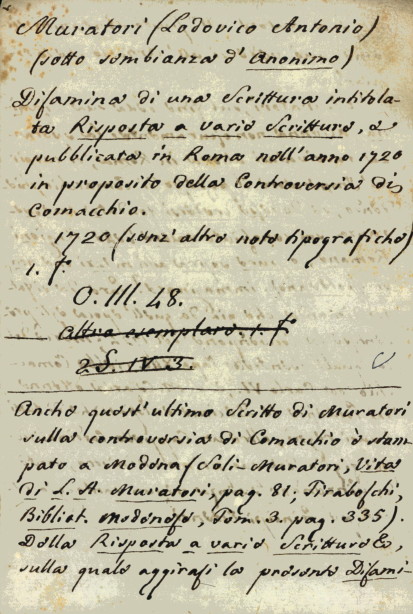 Muratori (Lodovico Antonio)
(sotto sembianza d' Anonimo)
Disamina di una Scrittura intitola-
ta Risposta a varie Scritture, e
pubblicata in Roma nell' anno 1720
in proposito della Controversia di
Comacchio.
1720 (senz' altre note tipografiche)
1. fº.
O. III. 48.
altro esemplare. 1. fº
2 S. IV. 3.
Anche quest' ultimo Scritto di Muratori
sulla controversia di Comacchio è stam-
pato a Modena (Soli-Muratori, Vita
di L. A. Muratori, pag. 81; Tiraboschi,
Bibliot. modenese, Tom. 3. pag. 335).
Della Risposta a varie Scritture &,
sulla quale aggirasi la presente Disami-